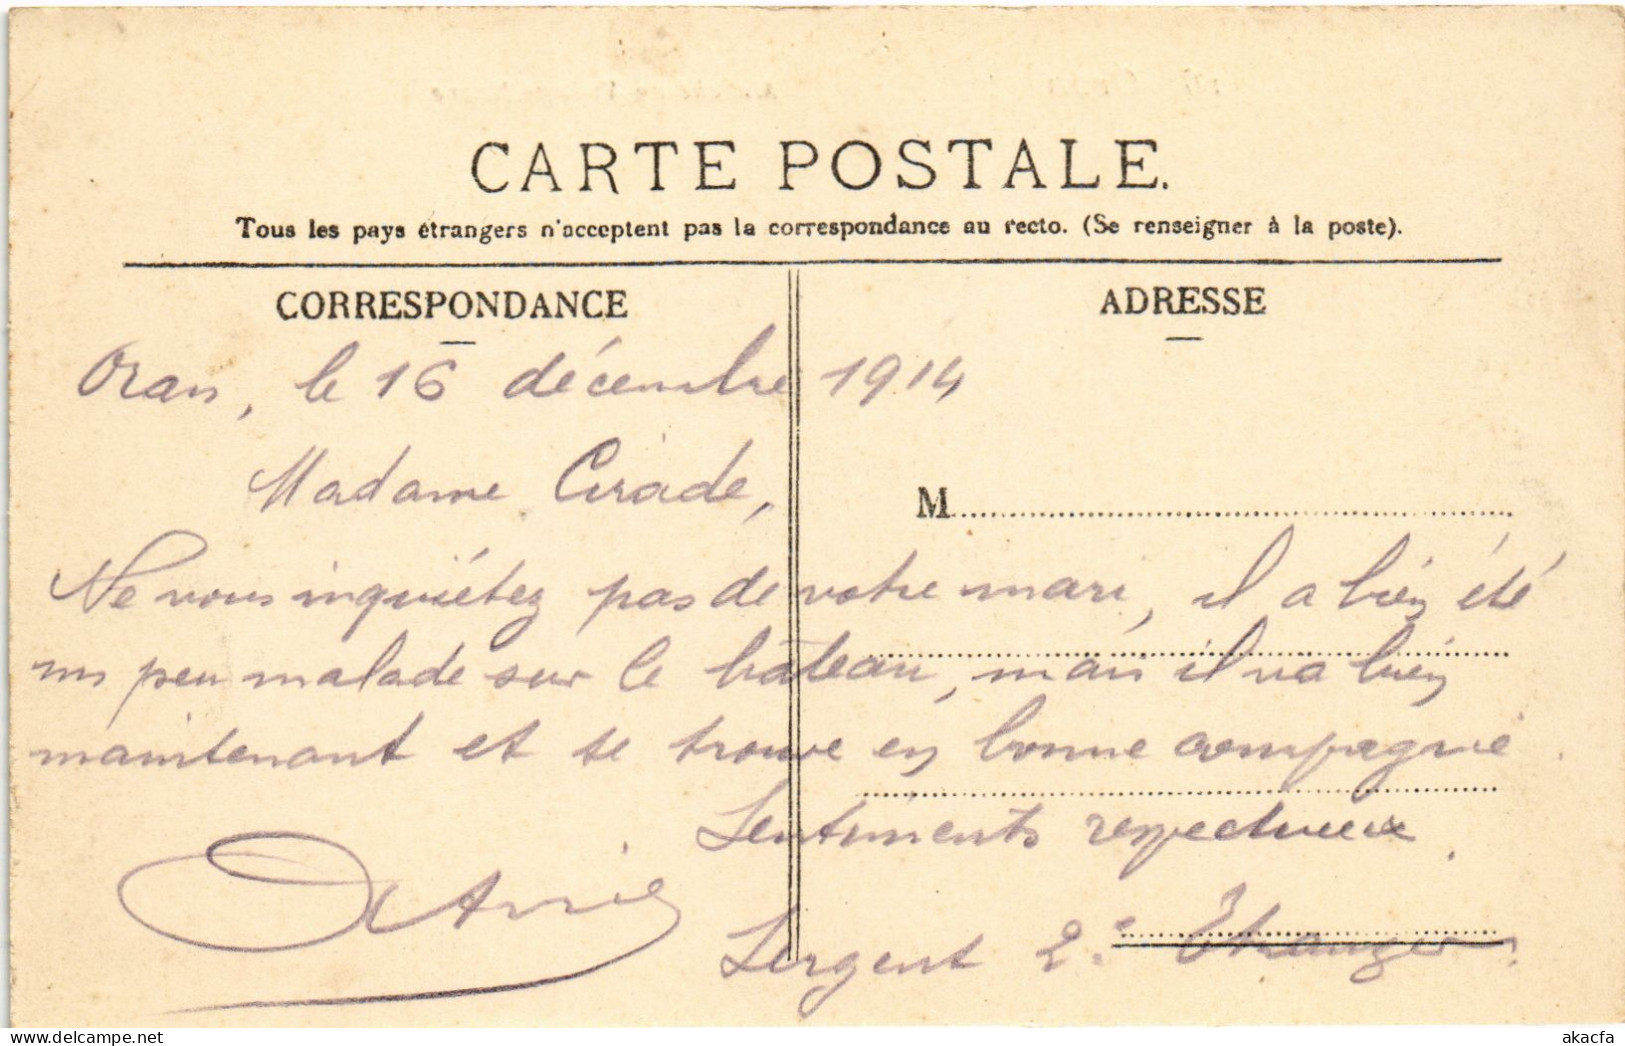 CARTE POSTALE.
Tous les pays étrangers n'acceptent pas la correspondance au recto. (Se renseigner à la poste).
CORRESPONDANCE
ADRESSE
Oran, le 16 décembre 1914
Madame Cirade,
M
Ne vous inquiétez pas de votre mari, il a bien été
un peu malade sur le bâteau, mais il va bien
maintenant et se trouve en bonne compagnie.
Sentiments respectueux.
Sergent 2e Etranger.
akacfa